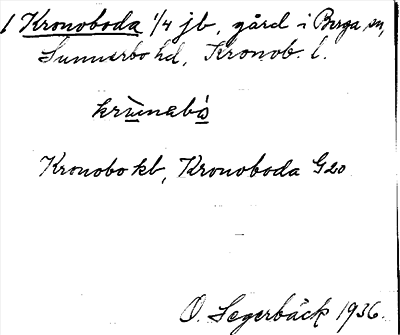 1 Kronoboda 1/4 jb, gård i Berga sn,
Sunnerbo hd, Kronob. l.
Kronobo kb, Kronoboda G20
O. Segerbäck 1936.